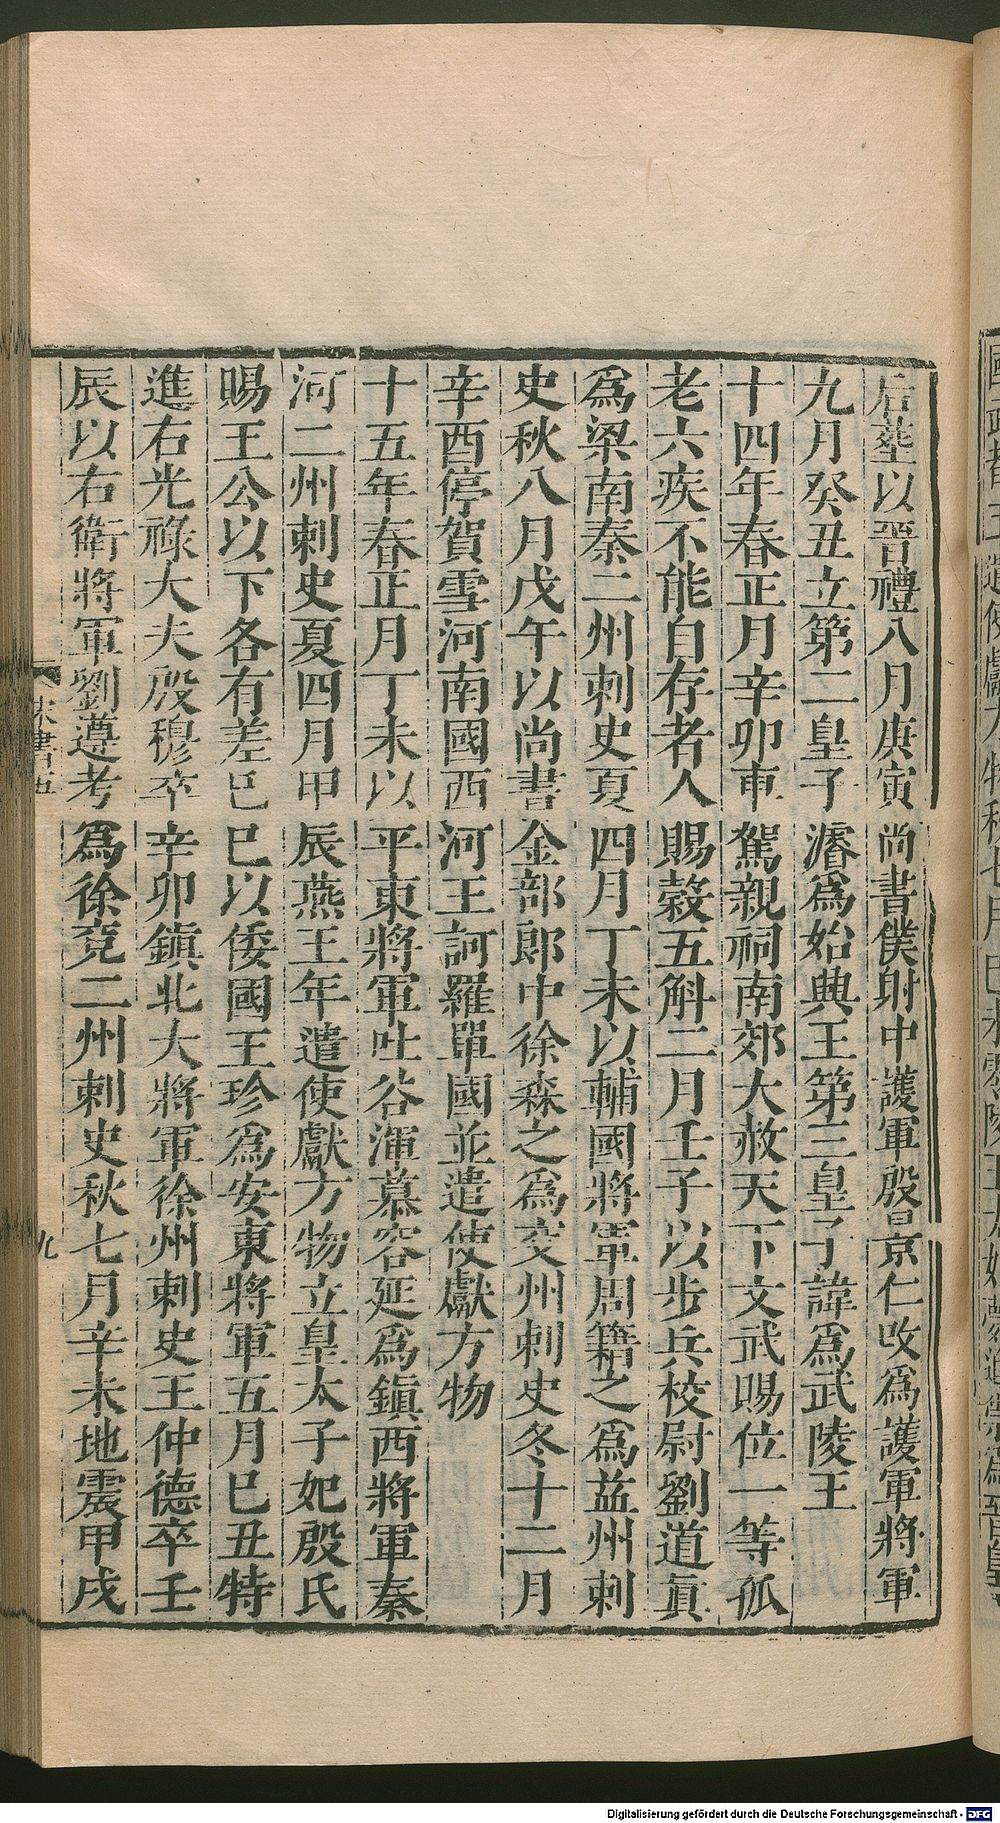 后葬以晉禮八月庚寅尚書僕射中護軍殷景仁改爲護軍將軍
九月癸丑立第二皇子濬爲始興王第三皇子諱爲武陵王
十四年春正月辛卯車駕親祠南郊大赦天下文武賜位一等孤
老六疾不能自存者人賜穀五斛二月壬子以步兵校尉劉道眞
爲梁南秦二州刺史夏四月丁未以輔國將軍周籍之爲益州刺
史秋八月戊午以尚書金部郎中徐森之爲交州刺史冬十二月
辛酉停賀雪河南國西河王訶羅單國並遣使獻方物
十五年春正月丁未以平東將軍吐谷渾慕容延爲鎮西將軍秦
河二州刺史夏四月甲辰燕王年遣使獻方物立皇太子妃殷氏
賜王公以下各有差巳巳以倭國王珍爲安東將軍五月巳丑特
進右光祿大夫殷穆卒辛卯鎮北大將軍徐州刺史王仲德卒壬
辰以右衛將軍劉遵考爲徐兗二州刺史秋七月辛未地震甲戌
宋書五
九
Digitalisierung gefördert durch die Deutsche Forschungsgemeinschaft - DFG